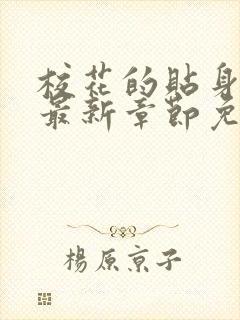 校花的贴身
最新章節免
楊原京子